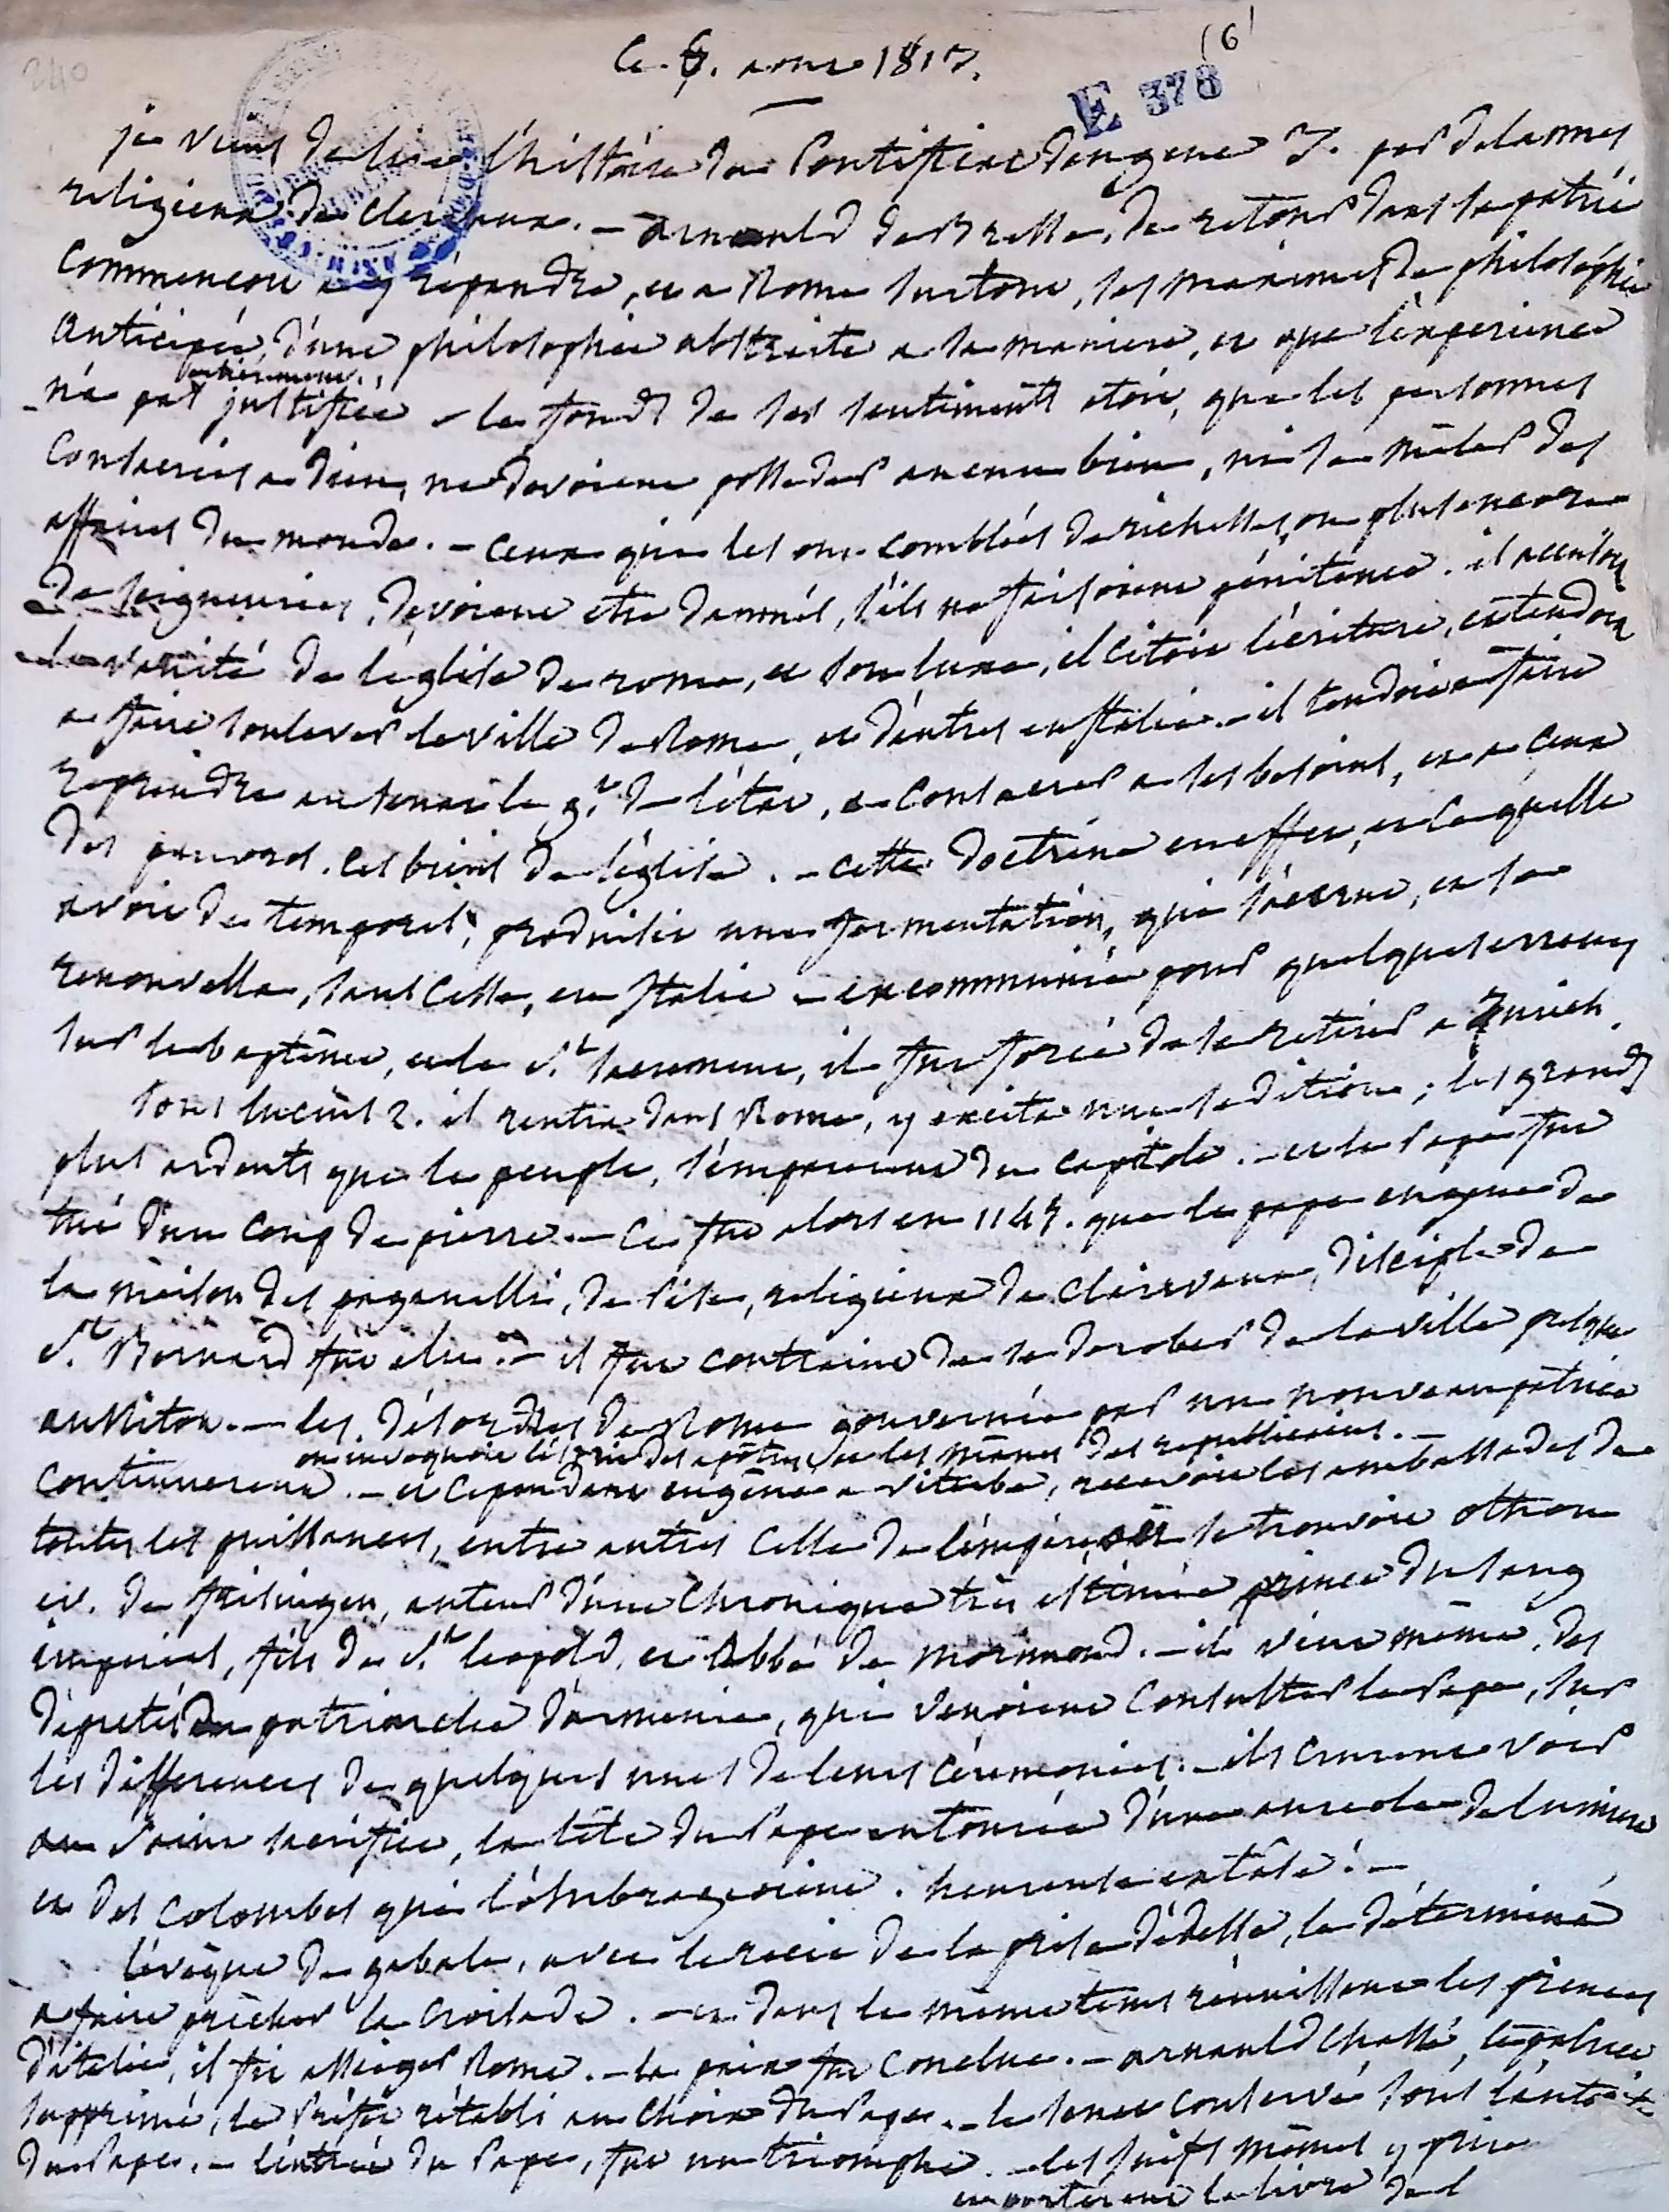 240
(6)
Ce 6. aout 1817.
E 378
je viens de lire l'histoire du Pontificat d'Eugene 3. par delannes
religieux de clervaux. - Arnauld de Bresse, de retour dans sa patrie
commencoit a y repandre, et a Rome surtout, ses maximes de philosophie
anticipée, d'une philosophie abstraite a sa maniere, et que l'experience
n'a pas justifiée - le fonds de ses sentiments etoit, que les personnes
consacrées a dieu, ne devoient posseder aucun bien, ni se mêler des
affaires du monde. - ceux qui les ont comblés de richesses, ou plus encore
de seigneuries, devoient etre damnés, s'ils ne faisoient pénitence. il accusoit
la vanité de l'église de rome, et son luxe, il citoit l'écriture, et tendoit
a faire soulever la ville de Rome, et d'autres en Italie. - il tendoit a faire
reprendre au senat le g.t de l'état, et consacrer a ses besoins, et a ceux
des pauvres, les biens de l'église. - cette doctrine en effet, et laquelle
avoit du temporel, produisit une fermentation, qui s'accrut, et se
renouvella, sans cesse, en Italie - excommunié pour quelques erreurs
sur le baptême, et le s.t sacrement, il fut forcé de se retirer a Zurich.
sous Lucius 2. il rentra dans Rome, y excita une sedition; les grands
plus ardents que le peuple, s'emparerent du capitole. - et le Pape fut
tué d'un coup de pierre. - ce fut alors en 1145. que le pape eugene de
la maison des paganelli, de Pise, religieux de Clairvaux, disciple de
s.t Bernard fut elu. - il fut contraint de se derober de la ville presque
aussitot. - les désordres de Rome gouvernée par un nouveau patrice
on invoquoit des apôtres, et les mânes des republicains. -
continuerent. - et cependant eugène a viterbe, recevoit les ambassades de
toutes les puissances, entre autres celle de l'empire, où se trouvoit othon
ev. de frisingen, auteur d'une chronique très estimée prince du sang
imperial, fils de s.t leopold, et abbé de morimond. - il vint même, des
députés du patriarche d'armenie, qui venoient consulter le Pape, sur
les differences de quelques unes de leurs cérémonies. - ils crurent voir
au saint sacrifice, la tête du Pape entourée d'une aureole de lumiere
et des colombes qui l'ombrageoient. heureuse extase! -
l'évêque de gabale, avec le recit de la prise d'édesse, le determina
a faire prêcher la croisade. - et dans le même tems réunissant les princes
d'italie, il fit assieger Rome. - la paix fut conclue. - arnauld chassé, le patrice
supprimé, le Préfet rétabli au choix du Pape. - le senat conservé sous l'autorité
du Pape. - l'entrée du Pape, fut un triomphe. - les juifs mêmes y prirent
le livre de l